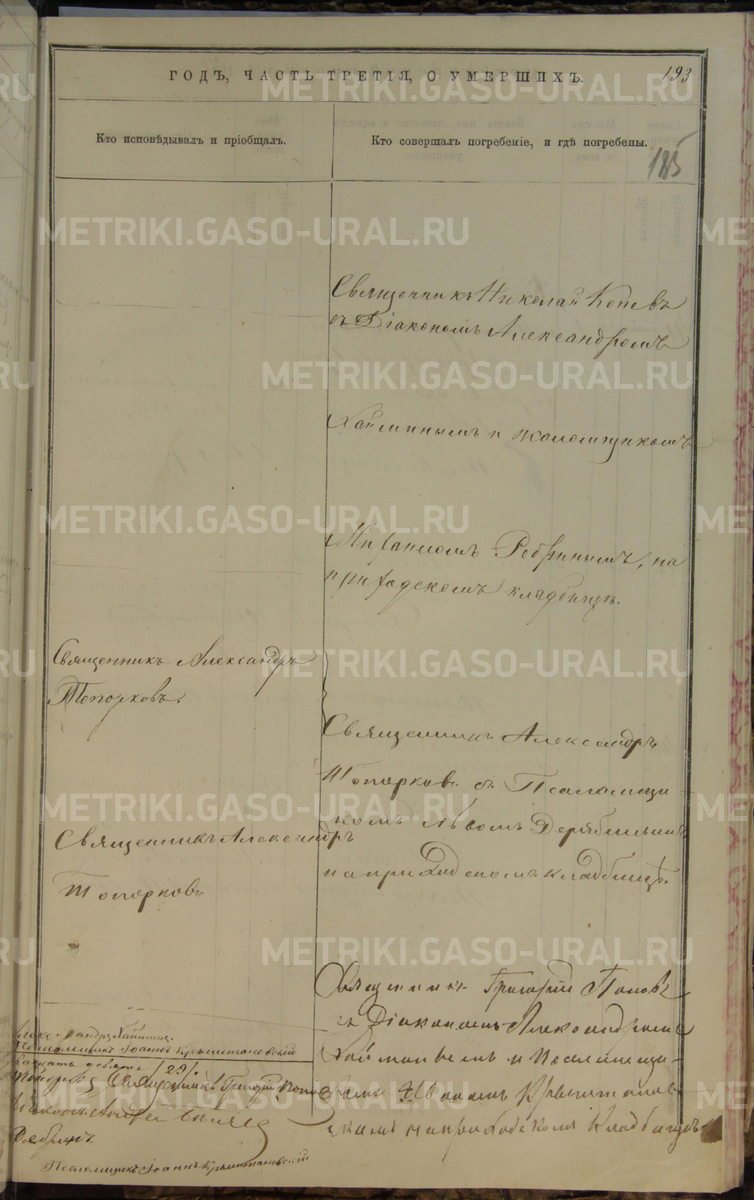 ГОДЪ, ЧАСТЬ ТРЕТІЯ, О УМЕРШИХЪ.
193
Кто исповѣдывалъ и пріобщалъ.
Кто совершалъ погребеніе, и гдѣ погребены.
185
METRIKI.GASO-URAL.RU
Священникъ Николай Попевъ
съ Діакономъ Александромъ
METRIKI.GASO-URAL.RU
Хайминымъ и псаломщикомъ
METRIKI.GASO-URAL.RU
Ребринымъ, на
приходскомъ кладбищѣ.
Священникъ Александръ
Топорковъ.
METRIKI.GASO-URAL.RU
Священникъ Александръ
Топорковъ съ Псаломщи-
METRIKI.GASO-URAL.RU
комъ Львомъ
на приходскомъ кладбищѣ.
Священникъ Александръ
Топорковъ
METRIKI.GASO-URAL.RU
Священникъ Григорій Поповъ
съ Діакономъ Александромъ
Хайминымъ и Псаломщи-
комъ Іоанномъ Крыштанов-
скимъ на приходскомъ кладбищѣ
METRIKI.GASO-URAL.RU
Александръ Хайминъ
Псаломщикъ Іоаннъ Крыштановскій
(29)
Священникъ Григорій Поповъ
Діаконъ
Ребринъ
Псаломщикъ Іоаннъ Крыштановскій